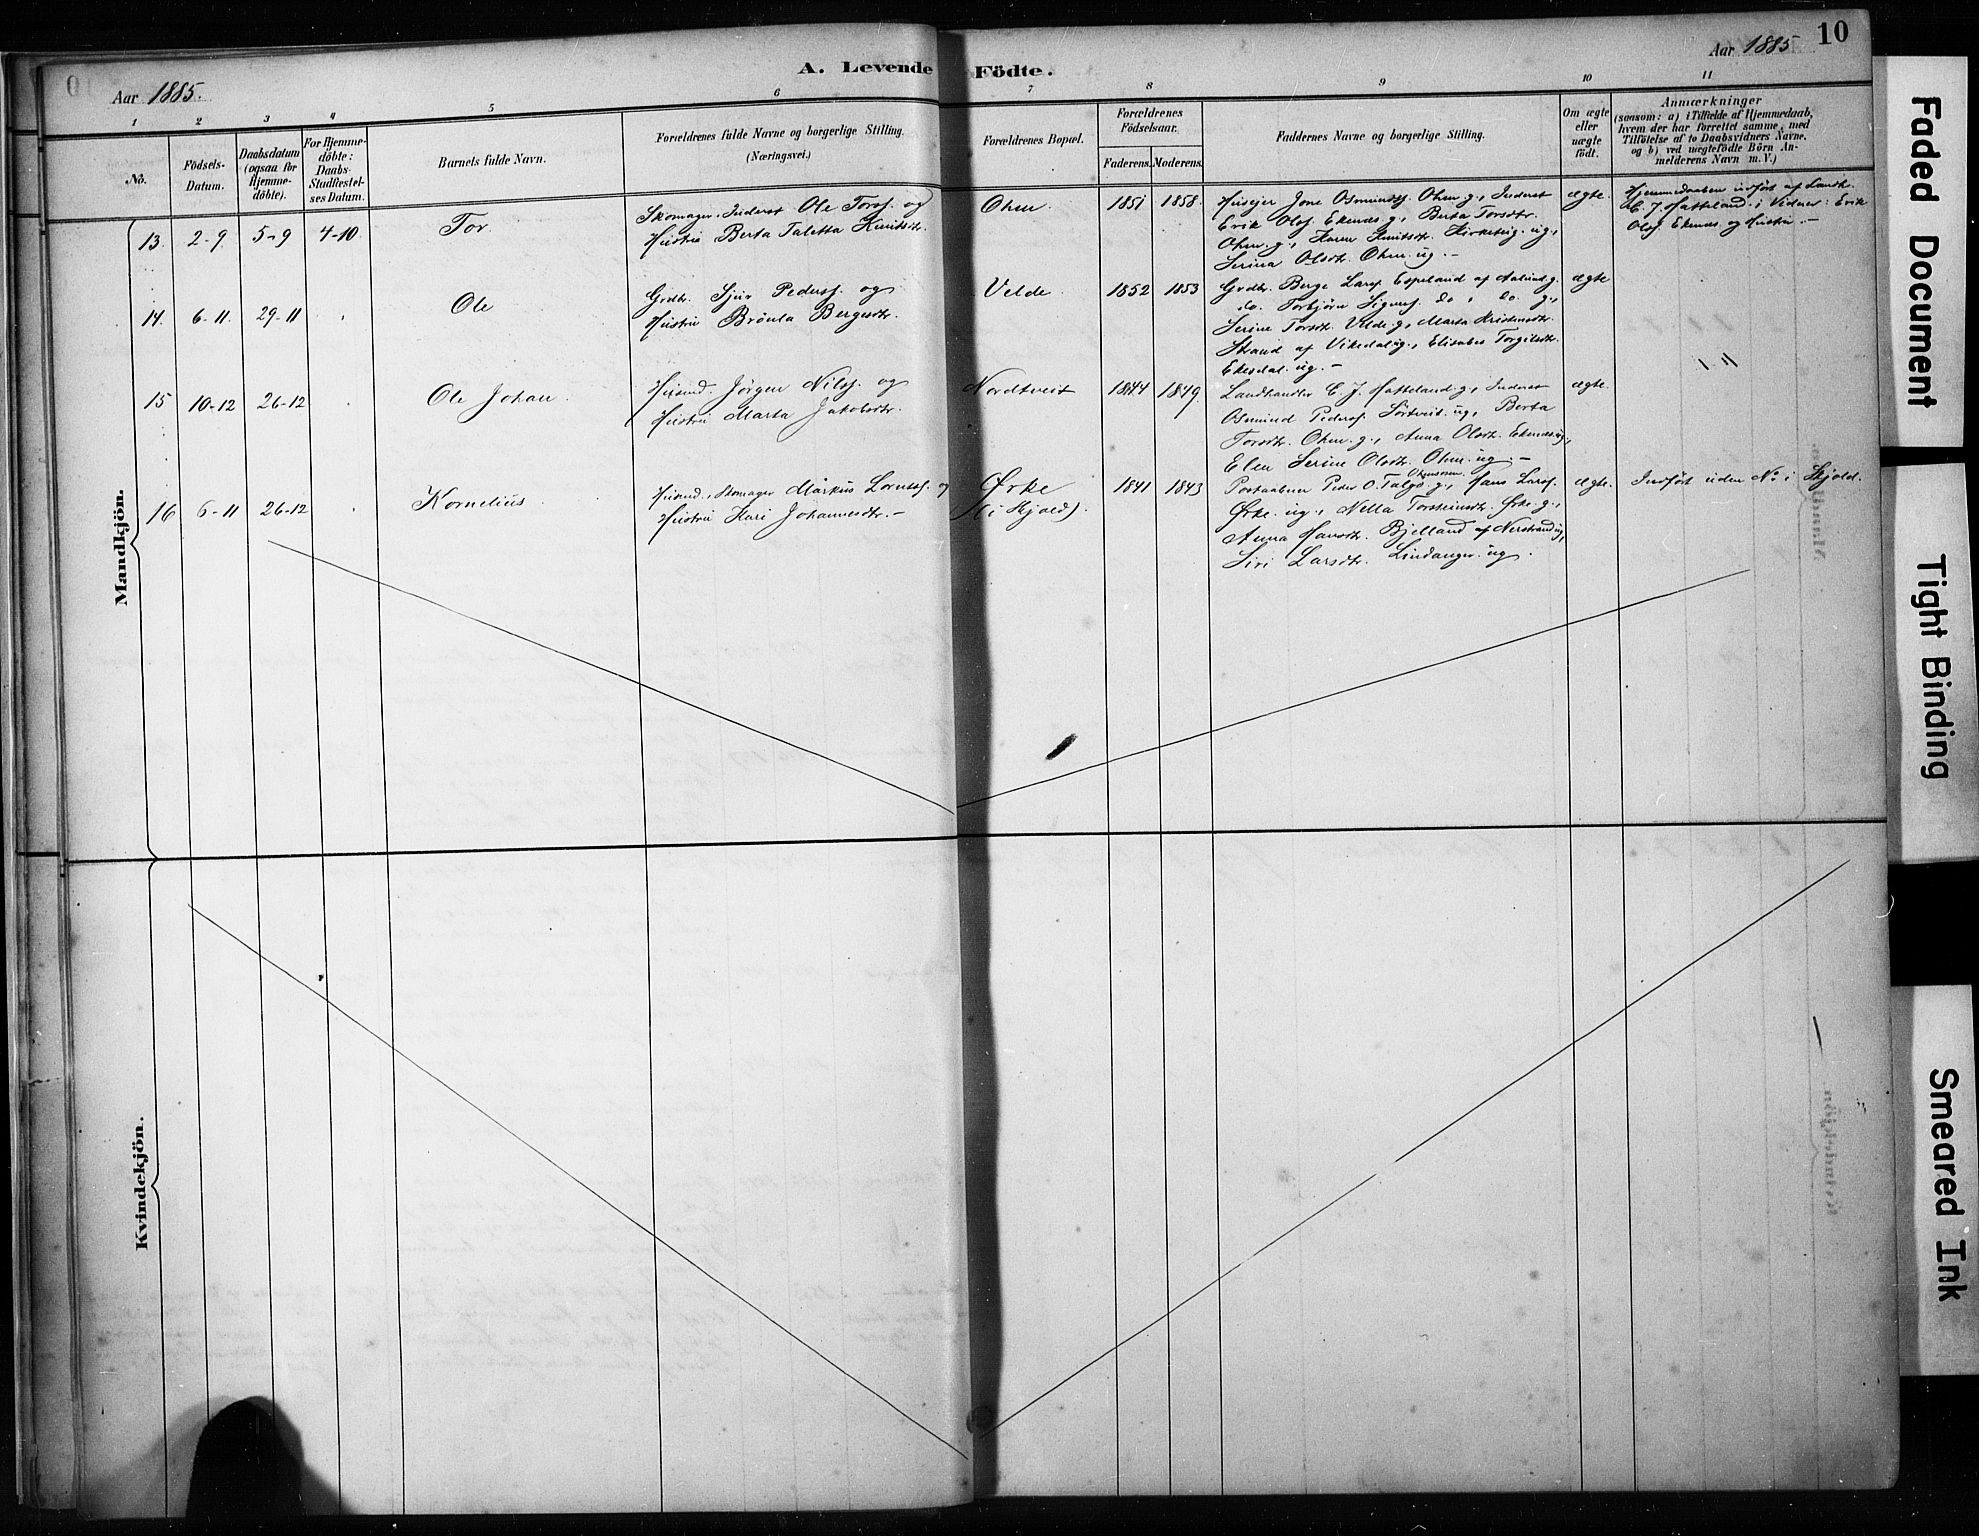 10
Aar 1885.
A. Levende Födte.
Aar 1885
1 2 3 4 5 6 7 8 9 10 11
No.
Födsels-
Datum.
Daabsdatum
(ogsaa for
Hjemme-
döbte).
For Hjemme-
döbte:
Daabs-
Stadfæstel-
ses Datum.
Barnets fulde Navn.
Forældrenes fulde Navne og borgerlige Stilling.
(Næringsvei.)
Forældrenes Bopæl.
Forældrenes
Födselsaar.
Faderens. Moderens.
Faddernes Navne og borgerlige Stilling.
Om ægte
eller
uægte
födt.
Anmærkninger
(saasom: a) i Tilfælde af Hjemmedaab,
hvem der har forrettet samme, med
Tilföielse af to Daabsvidners Navne,
og b) ved uægtefödte Börn An-
melderens Navn m. V.)
Mandkjön.
13. 2-9 5-9 4-10. Tor
Skomager, Inderst Ole Torss. og
Hustru Berta Taletta Knutsdtr.
Ohm 1851 1858.
Husejer Jone Osmundss. Ohm g., Inderst
Erik Olss. Ekenes g., Berta Torsdtr.
Ohm g., Karen Knutsdtr. Kirketeig ug.,
Serina Olsdtr. Ohm ug. -
ægte.
Hjemmedaaben udført af Landh.
E. J. Hatteland i Vidner: Erik
Olss. Ekenes og Hustru. -
14. 6-11. 29-11 Ole
Grdbr. Sjur Pederss. og
Hustru Brönla Bergesdtr.
Velde 1852 1853
Grdbr. Berge Larss. Espeland af Aalund g.
do. Torbjørn Sjurss. do. do g.,
Serine Torsdtr. Velde g., Marta Kristensdtr.
Strand af Vikedal ug., Elisabet Torgilsdtr.
Ekesdal ug. -
ægte
15 10-12 26-12 Ole Johan.
Husmd. Jörgen Nilss. og
Hustru Marta Jakobsdtr.
Nordtveit 1844 1849.
Landhandler E. J. Hatteland g., Inderst
Osmund Pederss. Sörtveit ug., Berta
Torsdtr. Ohm g., Anna Olsdtr. Ekenes ug.,
Elen Serine Olsdtr. Ohm ug. -
ægte.
16 6-11 26-12 Kornelius
Husmd., Skomager Markus Lorntss. og
Hustru Kari Johannesdtr. -
Ørke
(i Skjold).
1841 1843
Postaabner Peder O. Talgø g., Hans Larss.
Ørke ug., Nella Torsteinsdtr. Ørke g.,
Anna Hansdtr. Bjelland af Nerstrand ug.,
Siri Larsdtr. Lindanger ug.
ægte.
Indført uden No. i Skjold.
Kvindekjön.
Faded Document
Tight Binding
Smeared Ink